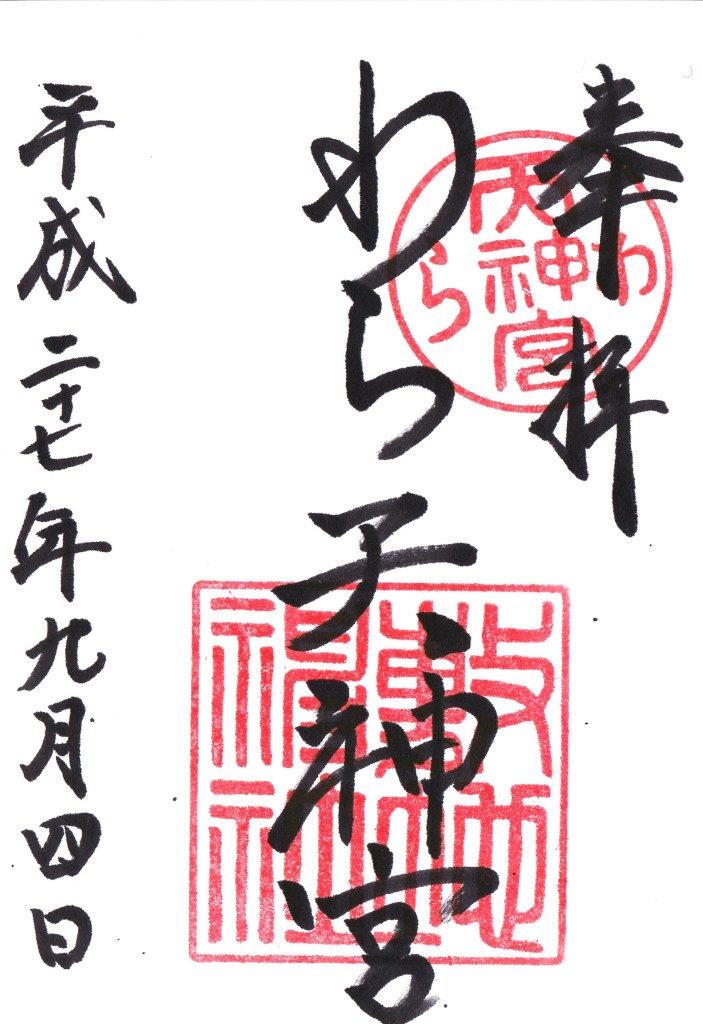 奉拝
わら天神宮
平成二十七年九月四日
わら天神宮
敷地神社